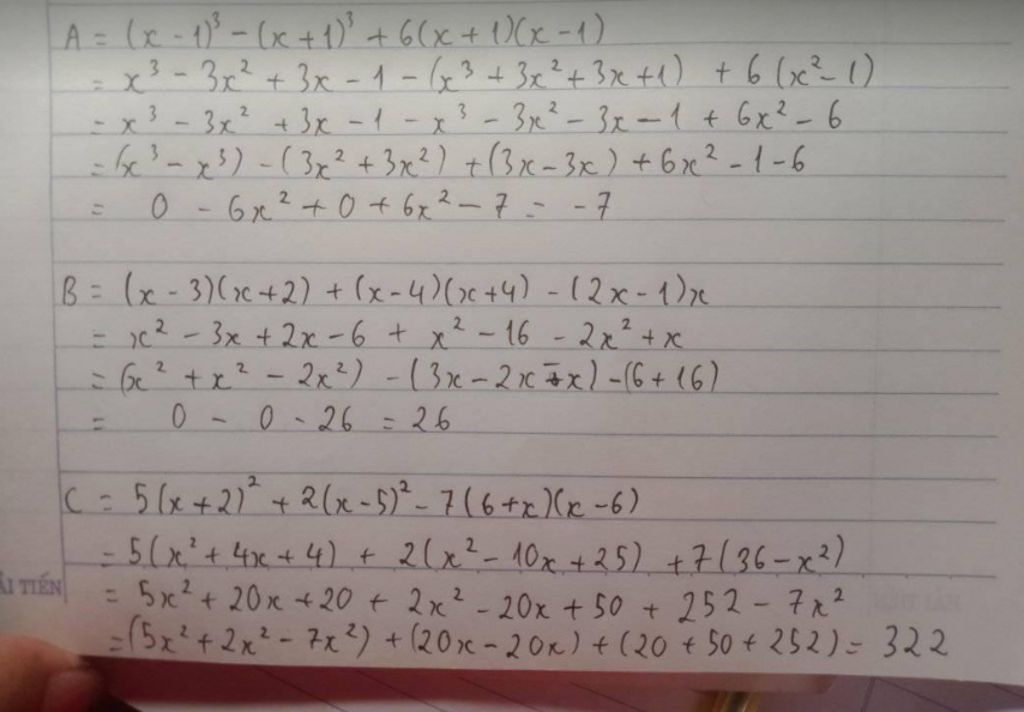 A = (x - 1)³ - (x + 1)³ + 6(x + 1)(x - 1)
= x³ - 3x² + 3x - 1 - (x³ + 3x² + 3x + 1) + 6(x² - 1)
= x³ - 3x² + 3x - 1 - x³ - 3x² - 3x - 1 + 6x² - 6
= (x³ - x³) - (3x² + 3x²) + (3x - 3x) + 6x² - 1 - 6
= 0 - 6x² + 0 + 6x² - 7 = -7
B = (x - 3)(x + 2) + (x - 4)(x + 4) - (2x - 1)x
= x² - 3x + 2x - 6 + x² - 16 - 2x² + x
= (x² + x² - 2x²) - (3x - 2x - x) - (6 + 16)
= 0 - 0 - 26 = 26
C = 5(x + 2)² + 2(x - 5)² - 7(6 + x)(x - 6)
= 5(x² + 4x + 4) + 2(x² - 10x + 25) + 7(36 - x²)
ẢI TIẾN
= 5x² + 20x + 20 + 2x² - 20x + 50 + 252 - 7x²
= (5x² + 2x² - 7x²) + (20x - 20x) + (20 + 50 + 252) = 322